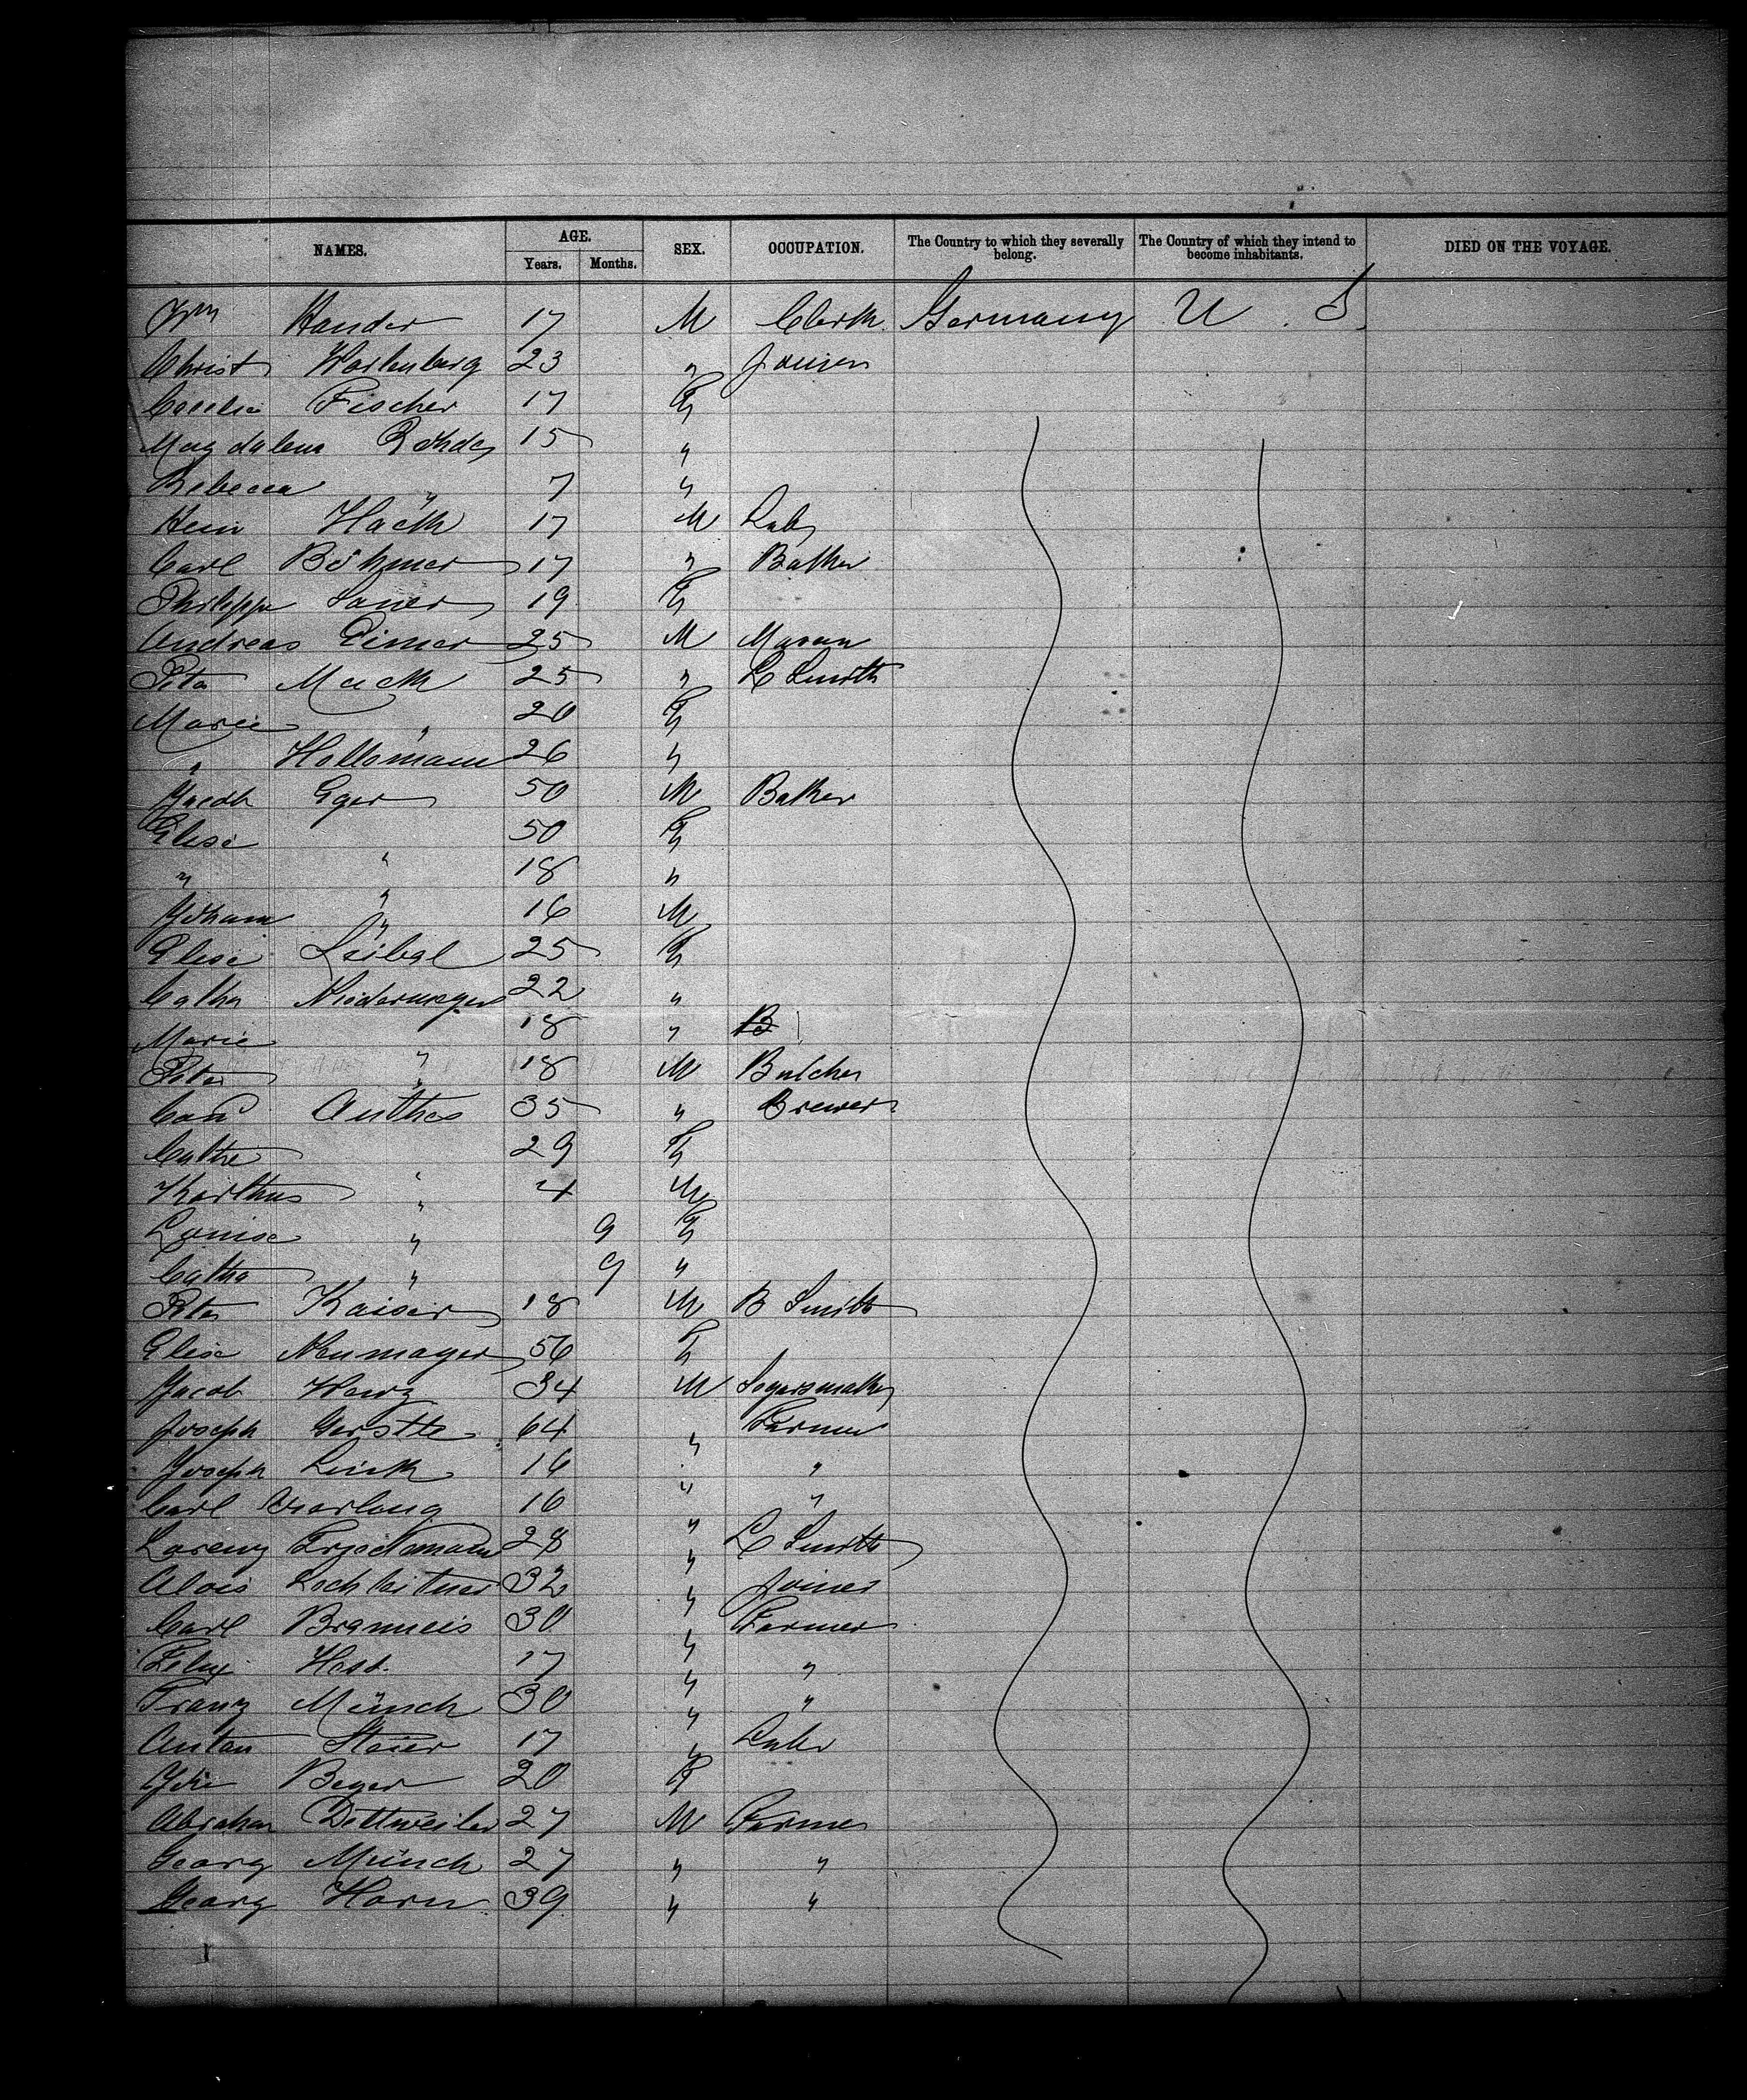 NAMES. AGE. SEX. OCCUPATION. The Country to which they severally belong. The Country of which they intend to become inhabitants. DIED ON THE VOYAGE.
Years. Months.
Wm Hander 17 M Clerk Germany U. S.
Christ 23 " Joiner
Cecelia Fischer 17 F
Magdalena Rohde 15 "
Rebecca " 7 "
Hein Hack 17 M Lab
Carl Böhmer 17 " Baker
Philippe Sauer 19 F
Andreas Eimer 25 M Mason
Peter Mack 25 " L Smith
Marie " 20 F
" Hollomann 26 "
Jacob Eger 50 M Baker
Elise " 50 F
" " 18 "
Johann " 16 M
Elise Leibal 25 F
Catha Niedermeyer 22 "
Marie " 18 "
Peter " 18 M Butcher
Conr Anthes 35 " Brewer
Cathe " 29 F
" 4 M
Louise " 9 F
Catha " 9 "
Peter Kaiser 18 M B Smith
Elise Neumayer 56 F
Jacob Herz 34 M Segarsmaker
Joseph Gerstle 64 " Farmer
Joseph Link 16 " "
Carl 16 " "
Lorenz 28 " L Smith
Alois Lechleitner 32 " Joiner
Carl 30 " Farmer
Felix Host 17 " "
Franz Münch 30 " "
Anton Steier 17 " Labr
Beyer 20 F
Abraham Dettweiler 27 M Farmer
Georg Münch 27 " "
Georg Horn 39 " "